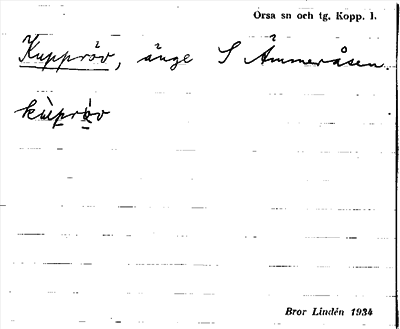 Orsa sn och tg. Kopp. l.
Kuppröv, änge S Ämmeråsen.
kùpròv
Bror Lindén 1934